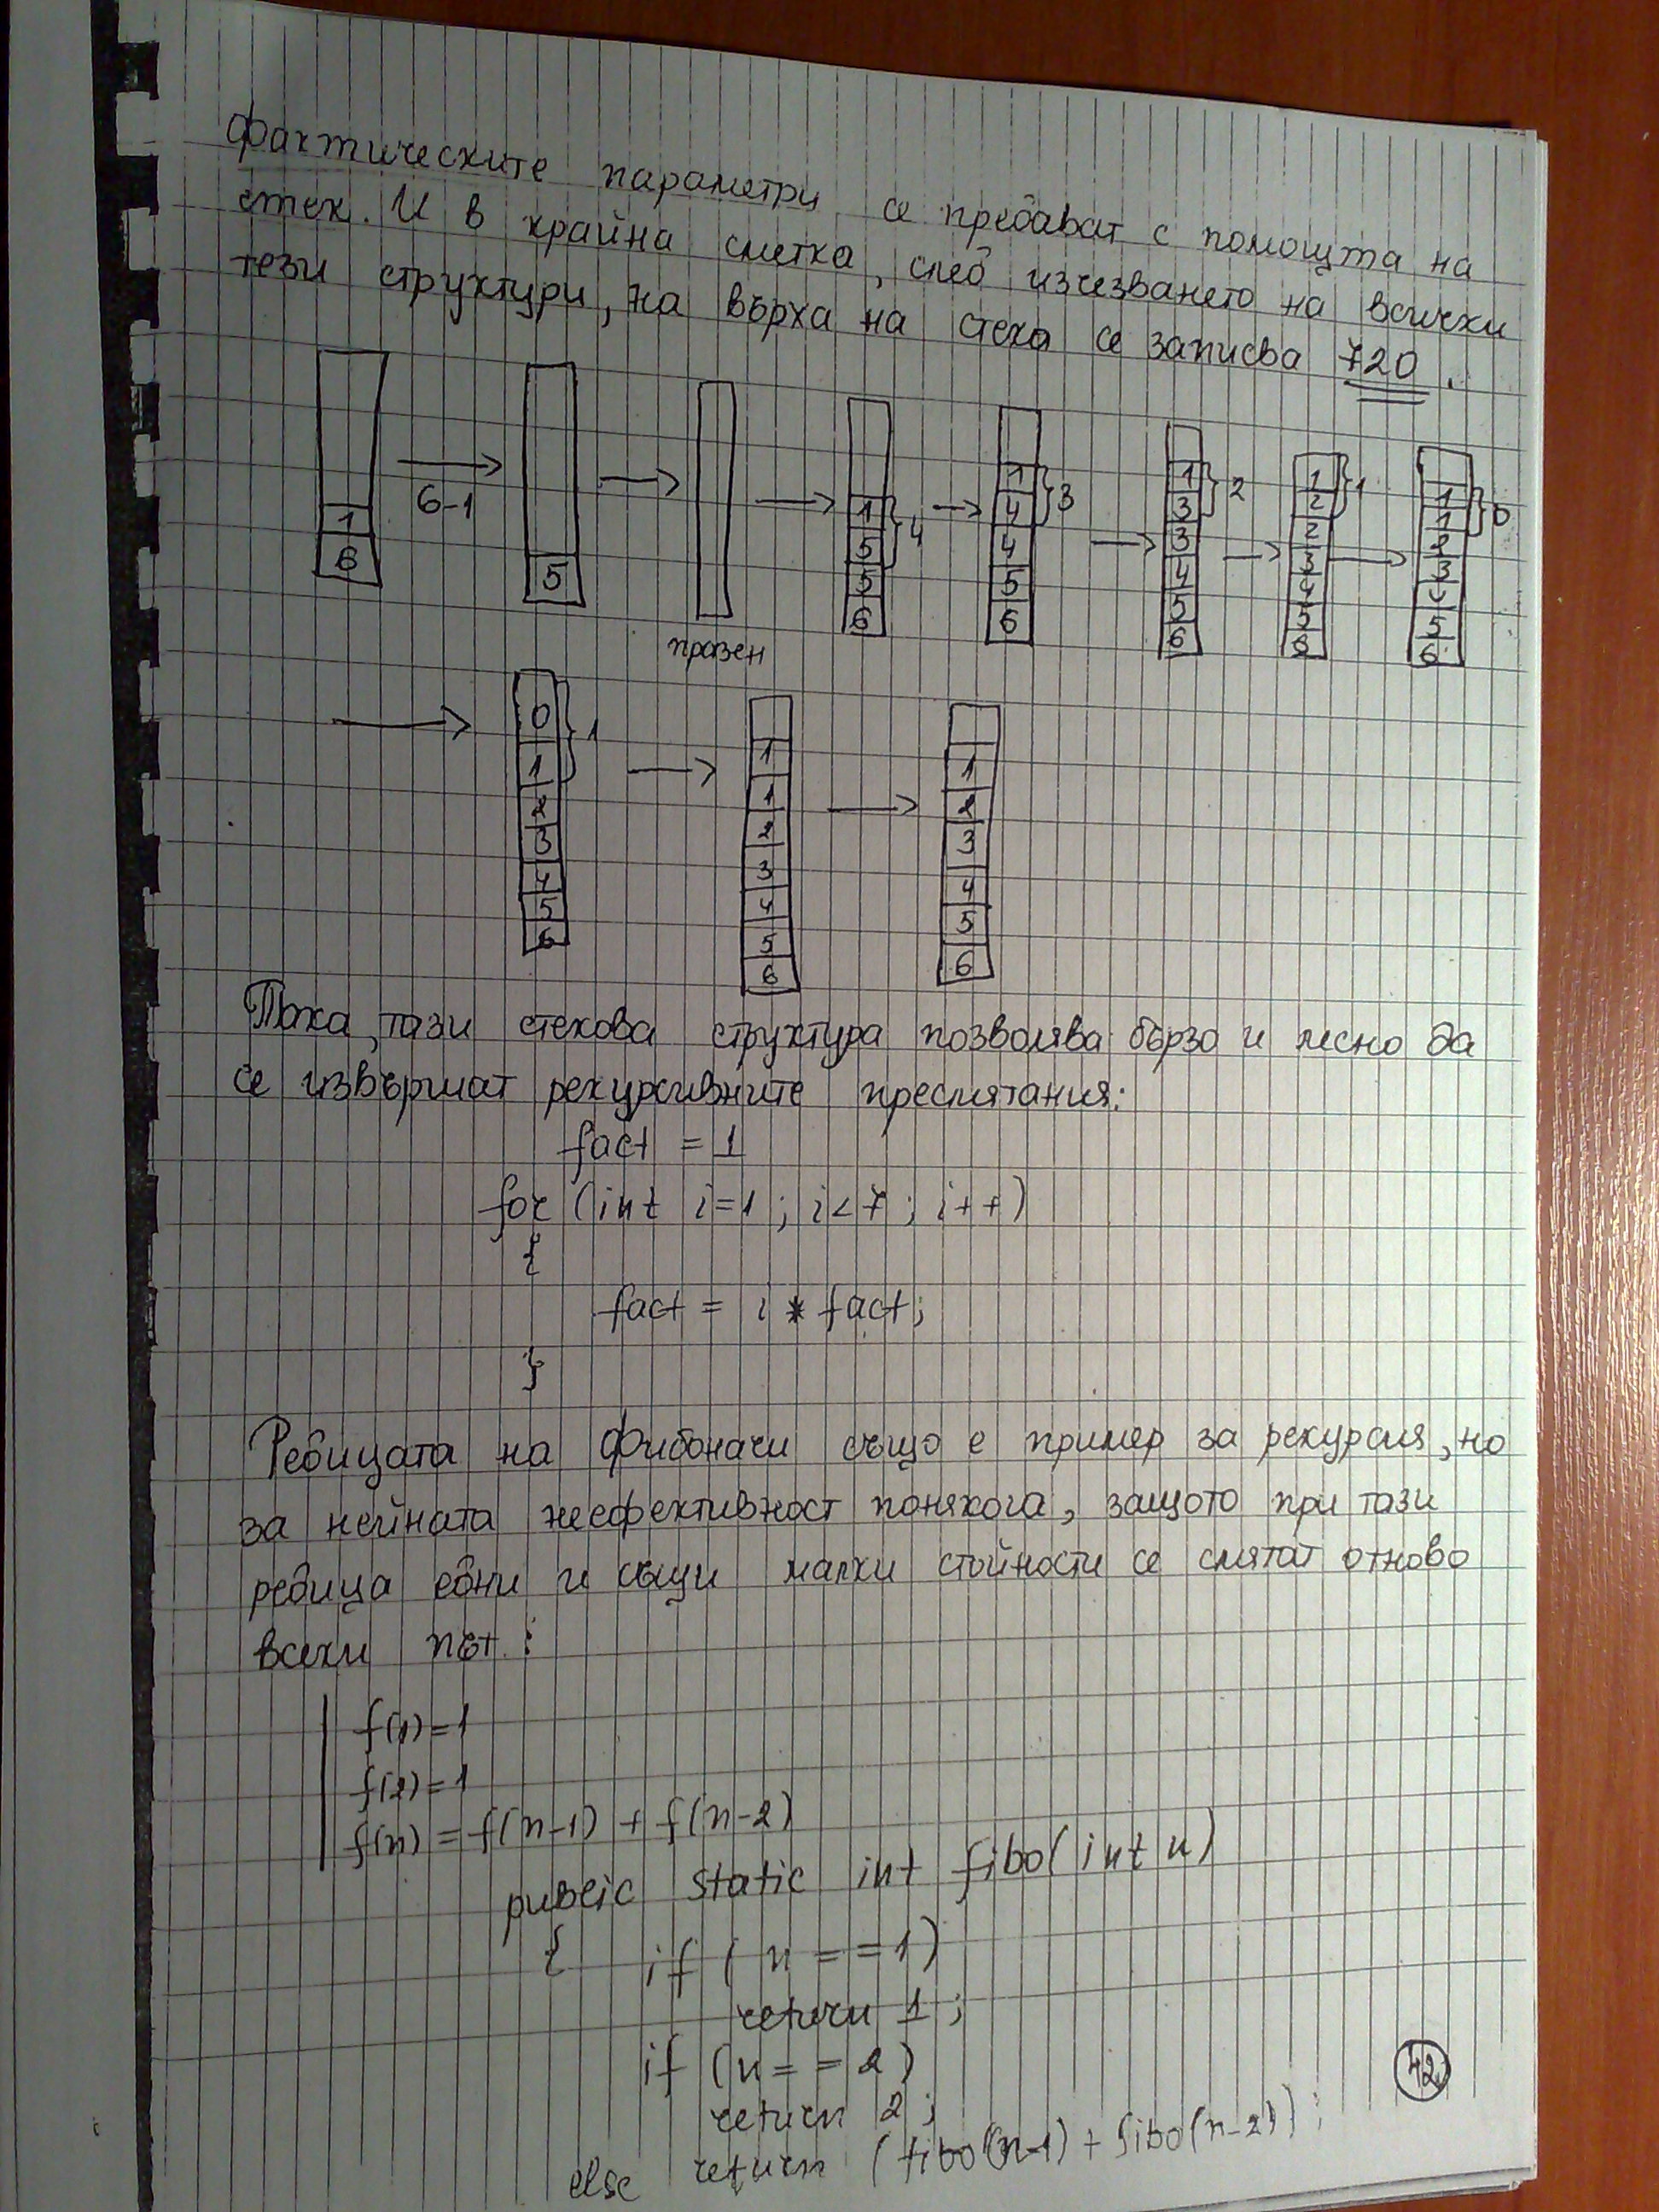 фактическите параметри се предават с помощта на
стек. И в крайна сметка, след изчезването на всички
тези структури, на върха на стека се записва 720.
1
6
6-1
5
празен
1
5
5
6
4
1
4
4
5
6
3
1
3
3
4
5
6
2
1
2
2
3
4
5
6
1
1
1
2
3
4
5
6
0
0
1
2
3
4
5
6
1
1
1
2
3
4
5
6
1
2
3
4
5
6
Така, тази стекова структура позволява бързо и лесно да
се извършат рекурсивните пресмятания:
fact = 1
for (int i=1; i<7; i++)
{
fact = i * fact;
}
Редицата на Фибоначи също е пример за рекурсия, но
за нейната неефективност понякога, защото при тази
редица едни и същи малки стойности се смятат отново
всеки път:
f(1)=1
f(2)=1
f(n)=f(n-1) + f(n-2)
public static int fibo(int n)
{ if (n==1)
return 1;
if (n==2)
return 2;
else return (fibo(n-1) + fibo(n-2));
42